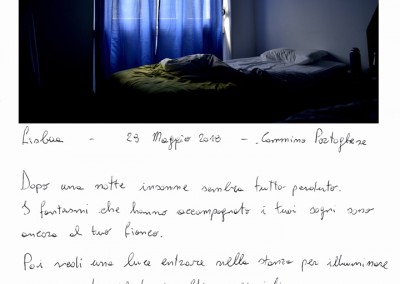 Lisboa - 29 Maggio 2018 - Cammino Portoghese
Dopo una notte insonne sembra tutto perduto.
I fantasmi che hanno accompagnato i tuoi sogni sono
ancora al tuo fianco.
Poi vedi una luce entrare nella stanza per illuminare